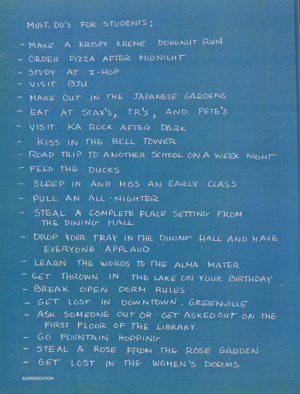 MUST. DO'S FOR STUDENTS:
- MAKE A KRISPY KREME DOUGNUT RUN
- ORDER PIZZA AFTER MIDNIGHT
- STUDY AT I-HOP
- VISIT BJU
- MAKE OUT IN THE JAPANESE GARDENS
- EAT AT STAX'S, TR'S, AND PETE'S
- VISIT KA ROCK AFTER DARK
- KISS IN THE BELL TOWER
- ROAD TRIP TO ANOTHER SCHOOL ON A WEEK NIGHT
- FEED THE DUCKS
- SLEEP IN AND MISS AN EARLY CLASS
- PULL AN ALL-NIGHTER
- STEAL A COMPLETE PLACE SETTING FROM
THE DINING HALL
- DROP YOUR TRAY IN THE DINING HALL AND HAVE
EVERYONE APPLAUD
- LEARN THE WORDS TO THE ALMA MATER
- GET THROWN IN THE LAKE ON YOUR BIRTHDAY
- BREAK OPEN DORM RULES
- GET LOST IN DOWNTOWN GREENVILLE
- ASK SOMEONE OUT OR GET ASKED OUT ON THE
FIRST FLOOR OF THE LIBRARY.
- GO FOUNTAIN HOPPING
- STEAL A ROSE FROM THE ROSE GARDEN
- GET LOST IN THE WOMEN'S DORMS
6/ORIENTATION